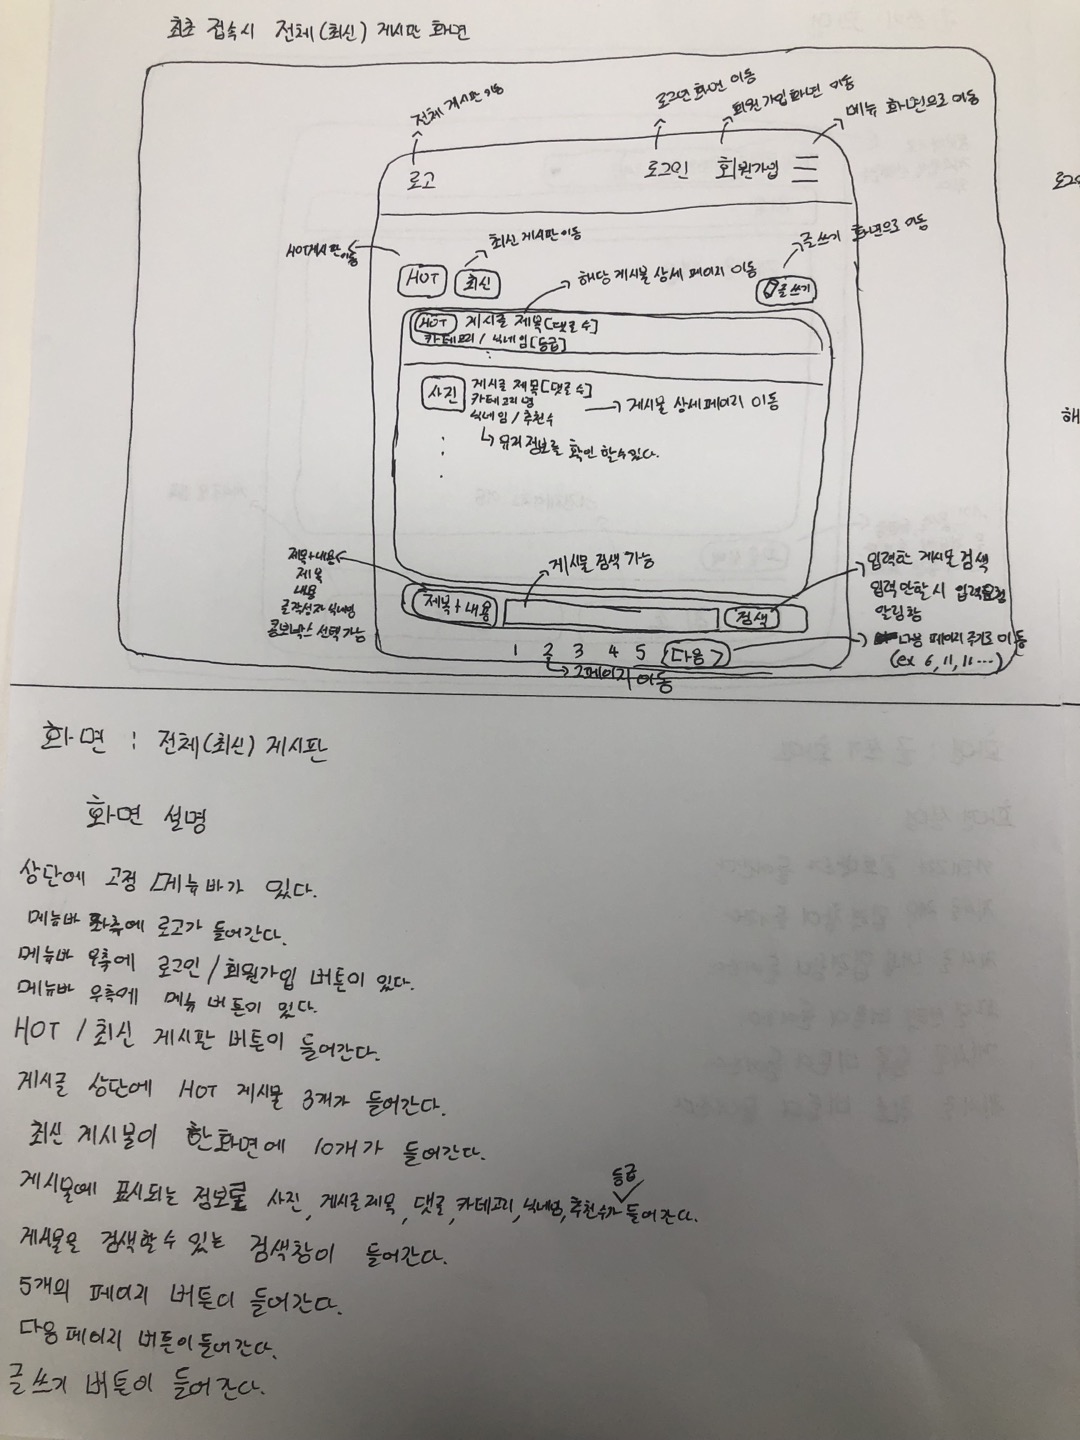 최초 접속시 전체(최신) 게시판 화면
전체 게시판 이동
로그인 화면 이동
회원가입화면 이동
메뉴 화면으로 이동
로고
로그인 회원가입
HOT게시판 이동
최신 게시판 이동
글쓰기 화면으로 이동
HOT 최신
해당 게시물 상세 페이지 이동
글쓰기
HOT 게시글 제목[댓글수]
카테고리 / 닉네임[등급]
사진
게시글 제목[댓글수]
카테고리명
닉네임 / 추천수
게시물 상세페이지 이동
정보를 확인 할수있다.
제목+내용
제목
내용
글작성자 닉네임
콤보박스 선택가능
게시물 검색 가능
입력한 게시물 검색
입력 안할 시 입력요청
알림창
제목+내용
검색
1 2 3 4 5 다음 >
2페이지 이동
다음 페이지 주기로 이동
(ex 6, 11, 11 ...)
로그인
해
화면 : 전체(최신) 게시판
화면 설명
상단에 고정 메뉴바가 있다.
메뉴바 좌측에 로고가 들어간다.
메뉴바 우측에 로그인 / 회원가입 버튼이 있다.
메뉴바 우측에 메뉴 버튼이 있다.
HOT / 최신 게시판 버튼이 들어간다.
게시글 상단에 HOT 게시물 3개가 들어간다.
최신 게시물이 한화면에 10개가 들어간다.
등급
게시물에 표시되는 정보로 사진, 게시글제목, 댓글, 카테고리, 닉네임, 추천수가 들어간다.
게시물을 검색할수 있는 검색창이 들어간다.
5개의 페이지 버튼이 들어간다.
다음페이지 버튼이 들어간다.
글쓰기 버튼이 들어간다.